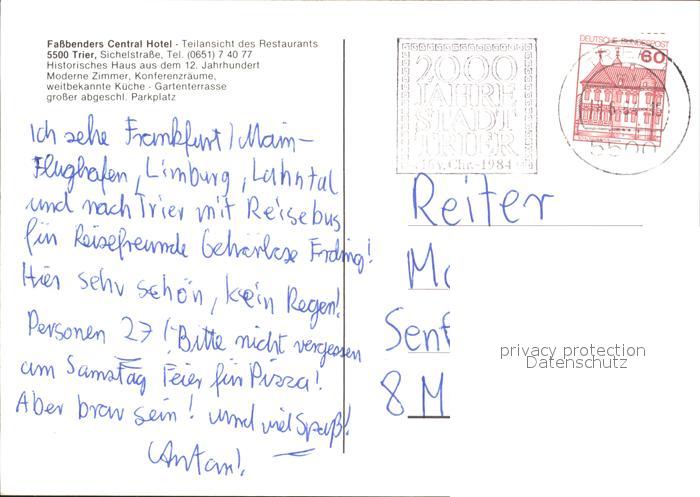 Faßbenders Central Hotel - Teilansicht des Restaurants
5500 Trier, Sichelstraße, Tel. (0651) 7 40 77
Historisches Haus aus dem 12. Jahrhundert
Moderne Zimmer, Konferenzräume,
weitbekannte Küche - Gartenterrasse
großer abgeschl. Parkplatz
2000
JAHRE
STADT
TRIER
16 v. Chr. - 1984
DEUTSCHE BUNDESPOST
60
5500
Ich sehe Frankfurt/Main-
Flughafen, Limburg, Lahntal
und nach Trier mit Reisebus
für Reisefreunde Gehörlose Erding!
Hier sehr schön, kein Regen!
Personen 27! Bitte nicht vergessen
am Samstag Feier für Pizza!
Aber brav sein! und viel Spaß!
Reiter
Senf
8 M
privacy protection
Datenschutz